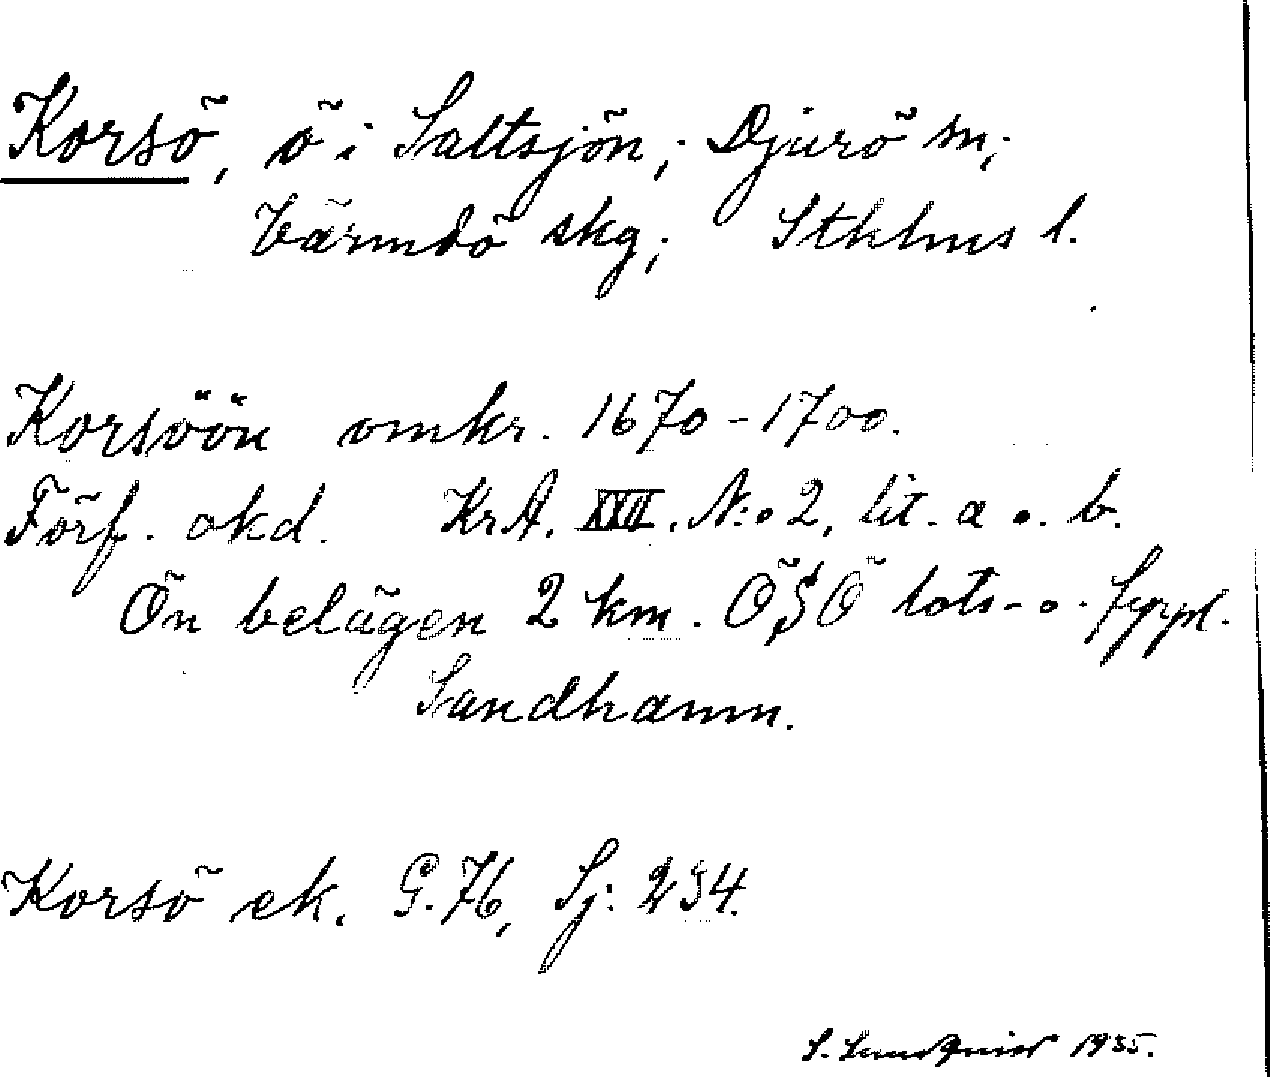 Korsö, ö i Saltsjön; Djurö sn;
Värmdö skg; Stklms l.
Korsöön omkr. 1670-1700.
Förf. okd. KrA. XXII. N:o 2, lit. a o. b.
Ön belägen 2 km. ÖSÖ lots- o. fyrpl.
Sandhamn.
Korsö ek. G. 76, Sj: 234.
S. Lundquist 1935.